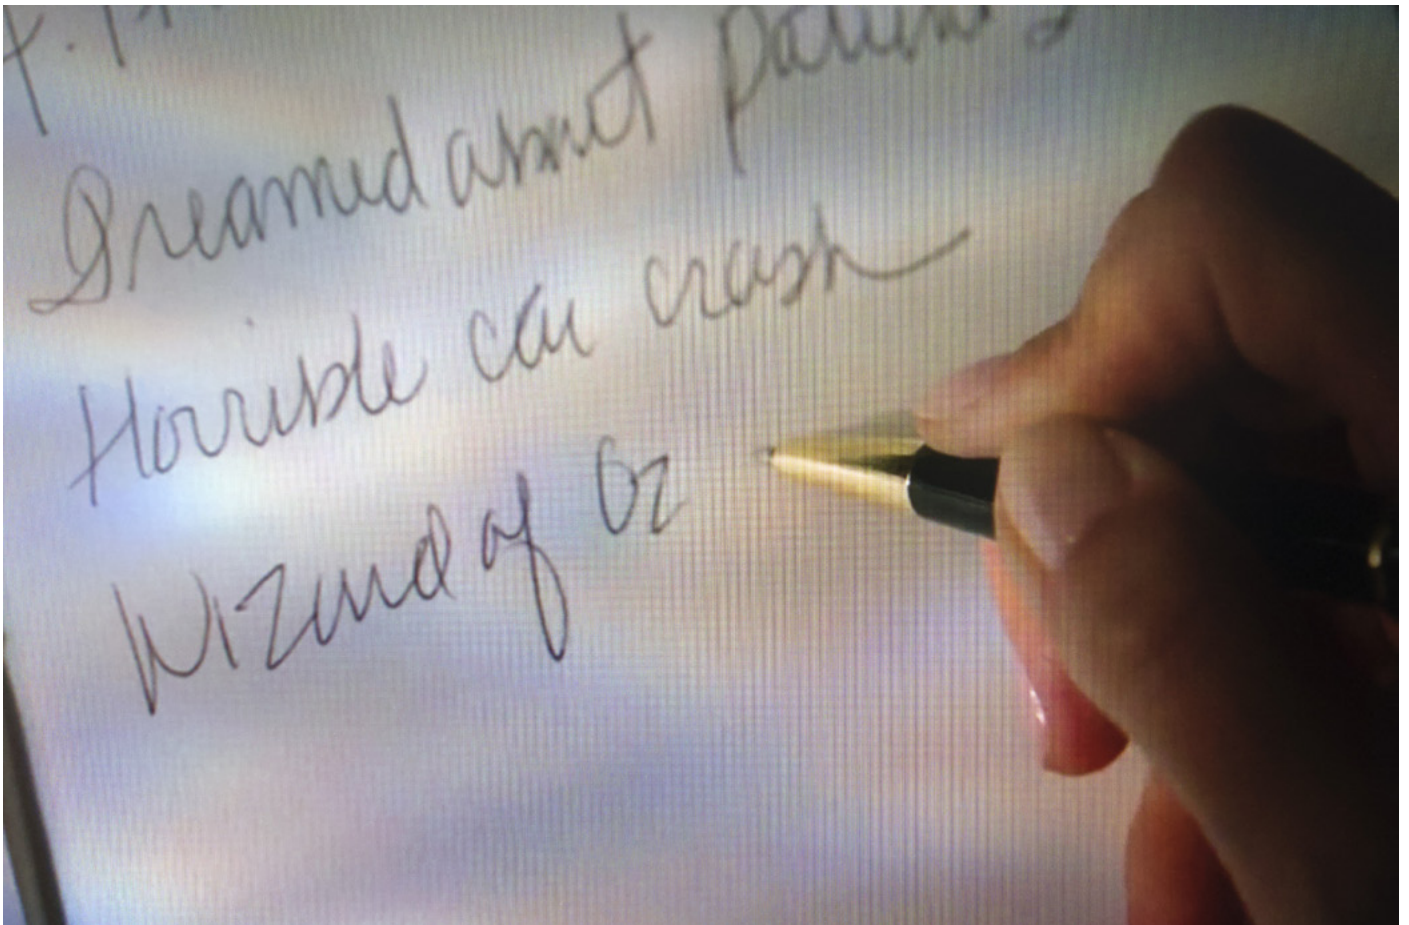 Dreamed about
Horrible car crash
Wizard of Oz